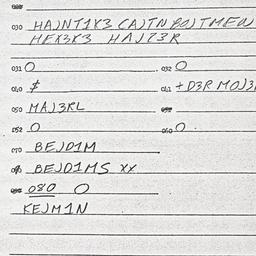 030 HAJNT1X3 CAJTN BOJTMEN
HEX3X3 HAJZ3R
031 O 032 O
040 $ 041 + D3R MOJ3
050 MAJ3RL
052 O 060 O
070 BEJD1M
090 BEJD1MS XX
080 O
KEJM1N